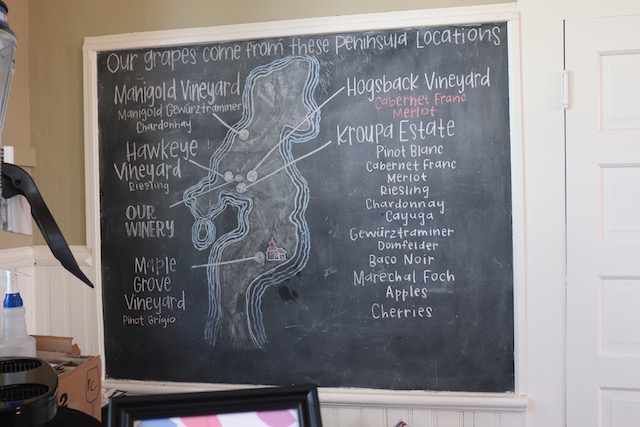 Our grapes come from these Peninsula Locations
Manigold Vineyard
Manigold Gewürztraminer
Chardonnay
Hawkeye
Vineyard
Riesling
OUR
WINERY
Maple
Grove
Vineyard
Pinot Grigio
Hogsback Vineyard
Cabernet Franc
Merlot
Kroupa Estate
Pinot Blanc
Cabernet Franc
Merlot
Riesling
Chardonnay
Cayuga
Gewürztraminer
Dornfelder
Baco Noir
Marechal Foch
Apples
Cherries